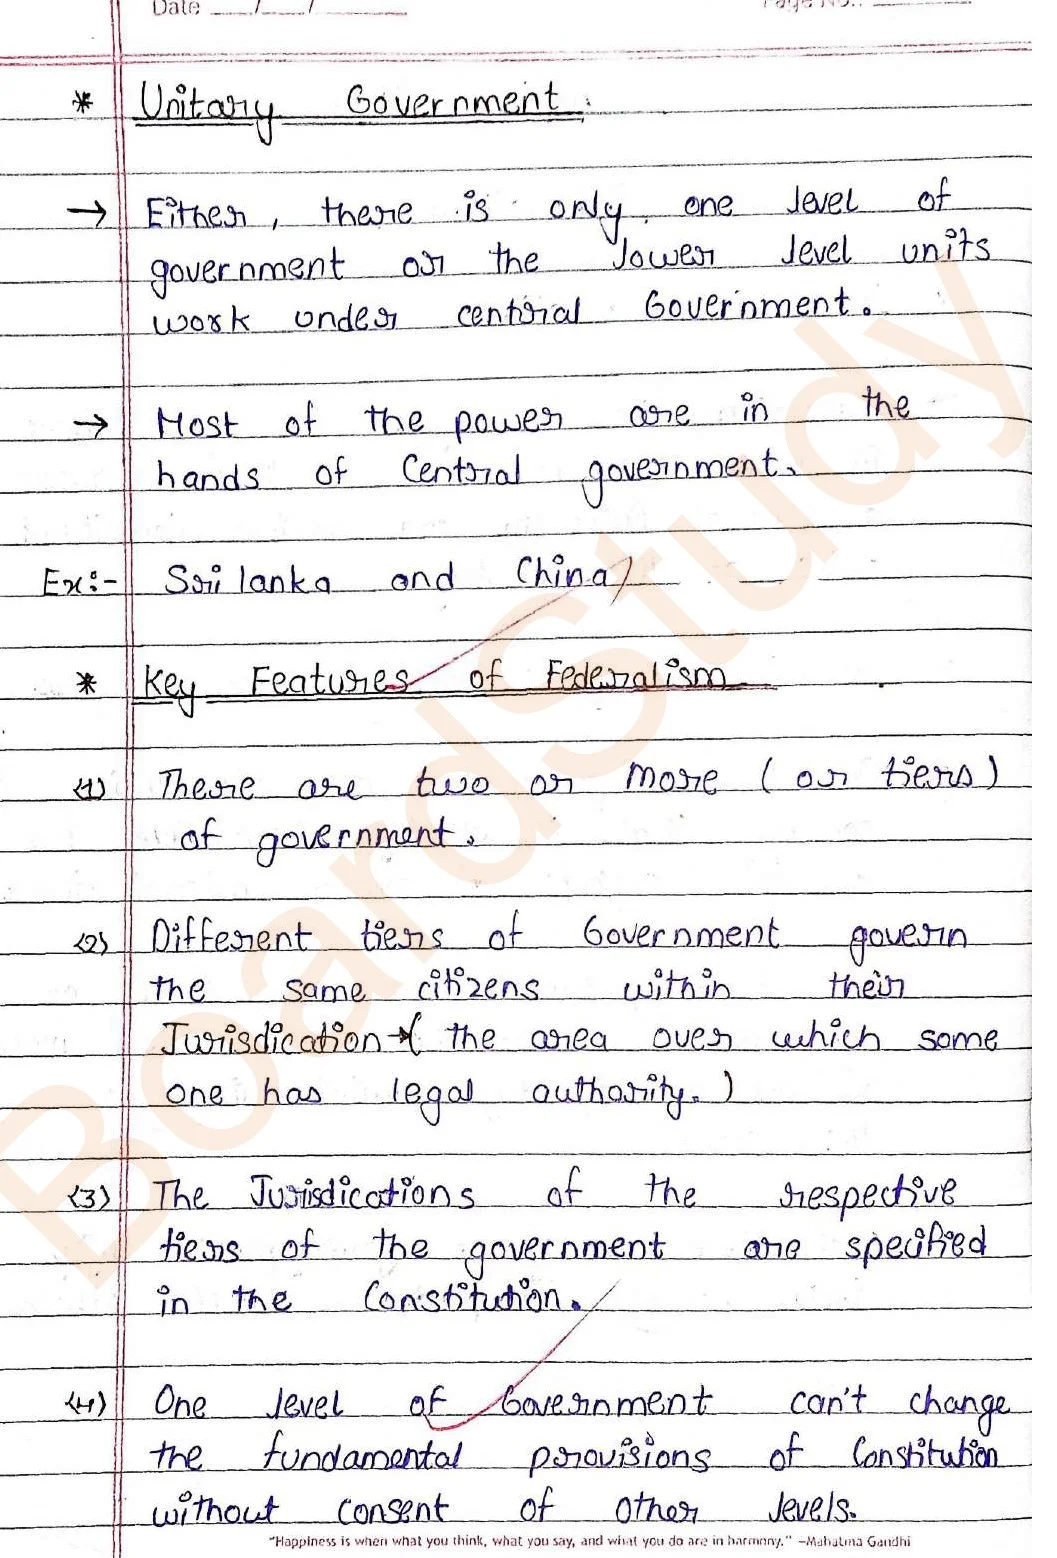 Date ___/___/___ Page No.: ___
* Unitary Government :
→ Either, there is only one level of
government or the lower level units
work under central Government.
→ Most of the power are in the
hands of Central government.
Ex:- Sri lanka and China
* Key Features of Federalism
(1) There are two or more (or tiers)
of government.
(2) Different tiers of Government govern
the same citizens within their
Jurisdication → ( the area over which some
one has legal authority. )
(3) The Jurisdications of the respective
tiers of the government are specified
in the Constitution.
(4) One level of Government can't change
the fundamental provisions of Constitution
without consent of other levels.
"Happiness is when what you think, what you say, and what you do are in harmony." –Mahatma Gandhi
BoardStudy